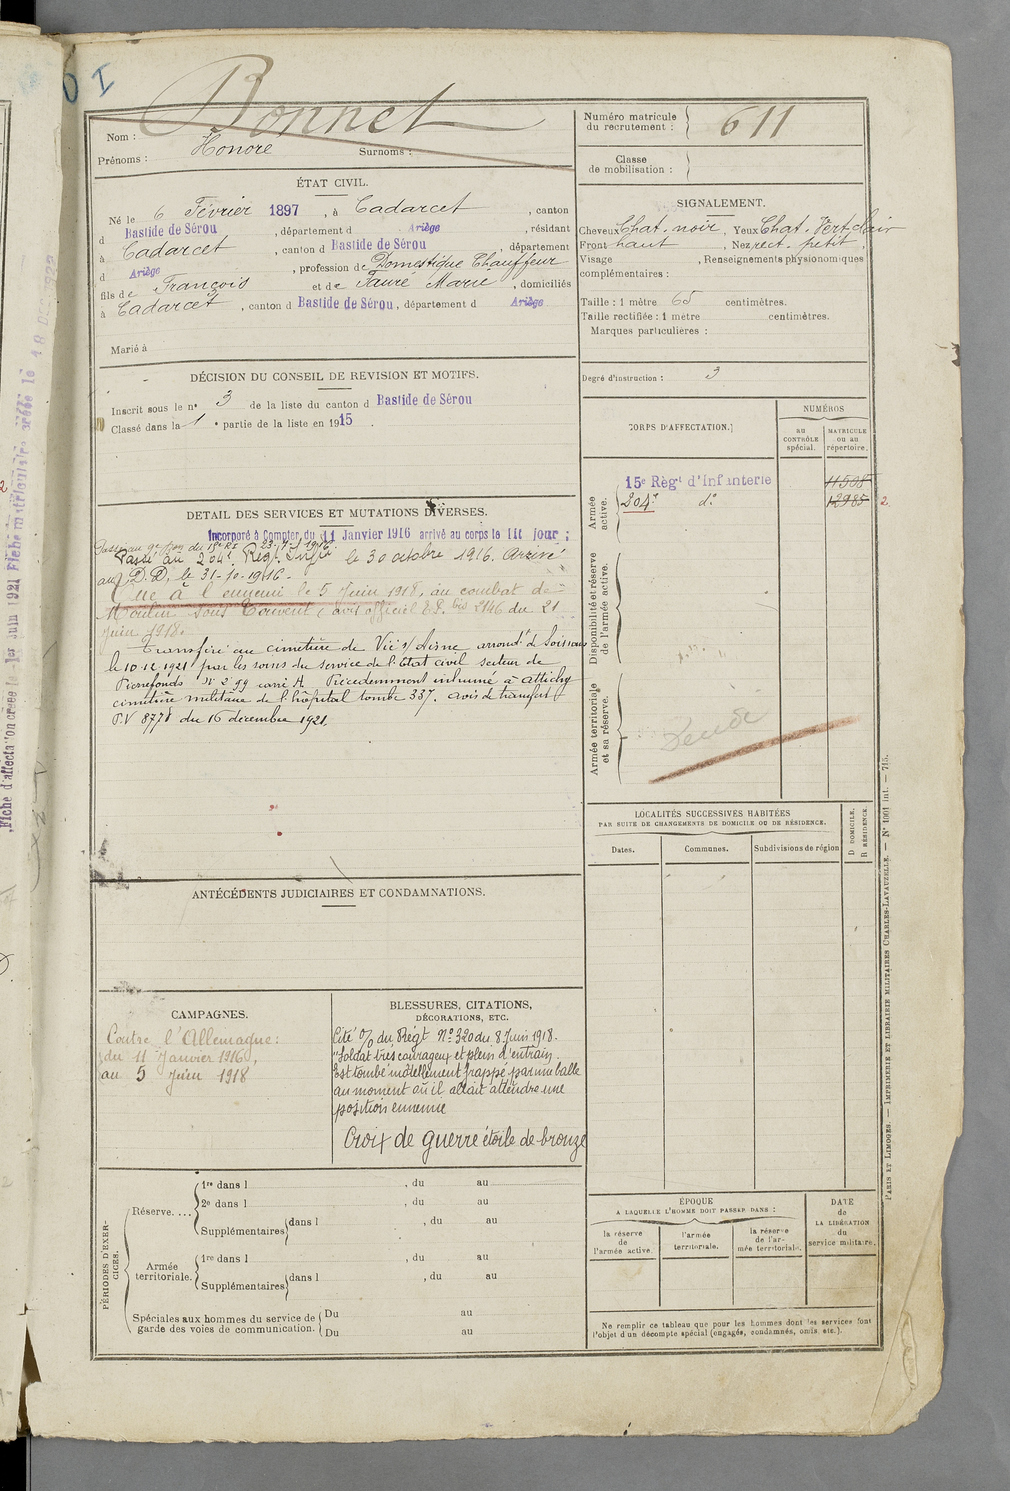 I
Bonnet
Nom :
Prénoms : Honoré Surnoms :
Numéro matricule
du recrutement : 611
Classe
de mobilisation :
ÉTAT CIVIL.
Né le 6 Février 1897, à Cadarcet, canton
d Bastide de Sérou, département d Ariège, résidant
à Cadarcet, canton d Bastide de Sérou, département
d Ariège, profession de Domestique Chauffeur
fils de François et de Fauré Marie, domiciliés
à Cadarcet, canton d Bastide de Sérou, département d Ariège
Marié à
SIGNALEMENT.
Cheveux Chat. noir, Yeux Chat. Vert clair
Front haut, Nez rect. petit,
Visage , Renseignements physionomiques
complémentaires :
Taille : 1 mètre 65 centimètres.
Taille rectifiée : 1 mètre centimètres.
Marques particulières :
Degré d'instruction : 3
DÉCISION DU CONSEIL DE REVISION ET MOTIFS.
Inscrit sous le n° 3 de la liste du canton d Bastide de Sérou
Classé dans la 1e partie de la liste en 1915.
CORPS D'AFFECTATION.
NUMÉROS
AU
CONTRÔLE
spécial.
MATRICULE
ou au
répertoire.
Armée
active.
15e Régt d'Infanterie 11508
204e do 12985 2
Disponibilité et réserve
de l'armée active.
Armée territoriale
et sa réserve.
Décédé
DETAIL DES SERVICES ET MUTATIONS DIVERSES.
Incorporé à Compter du 11 Janvier 1916 arrivé au corps le dit jour ;
Passé au 204e Régt Infie le 30 octobre 1916. Arrivé
au D.D, le 31-10-1916.
Tué à l'ennemi le 5 Juin 1918, au combat de
Moulin sous Touvent (avis officiel E.P. bis 2146 du 21
Juin 1918.
Transféré au cimetière de Vic s/ Aisne arrondt de Soissons
le 10.12.1921 par les soins du service de l'Etat civil secteur de
Pierrefonds No 299 carré A. Précédemment inhumé à Attichy
cimetière militaire de l'hôpital tombe 337. avis de transfert
P.V 8778 du 16 décembre 1921.
LOCALITÉS SUCCESSIVES HABITÉES
PAR SUITE DE CHANGEMENTS DE DOMICILE OU DE RÉSIDENCE.
Dates.
Communes.
Subdivisions de région
D DOMICILE.
R RÉSIDENCE.
ANTÉCÉDENTS JUDICIAIRES ET CONDAMNATIONS.
CAMPAGNES.
Contre l'Allemagne :
du 11 Janvier 1916,
au 5 Juin 1918
BLESSURES, CITATIONS,
DÉCORATIONS, ETC.
Cité O/ du Régt No 320 du 8 Juin 1918.
"Soldat très courageux et plein d'entrain.
Est tombé mortellement frappé par une balle
au moment où il allait atteindre une
position ennemie
Croix de guerre étoile de bronze
PÉRIODES D'EXERCICES.
Réserve....
1re dans l , du au
2e dans l , du au
Supplémentaires dans l , du au
Armée
territoriale.
1re dans l , du au
Supplémentaires dans l , du au
Spéciales aux hommes du service de
garde des voies de communication.
Du au
Du au
ÉPOQUE
A LAQUELLE L'HOMME DOIT PASSER DANS :
la réserve
de
l'armée active.
l'armée
territoriale.
la réserve
de l'ar-
mée territoriale.
DATE
de
LA LIBÉRATION
du
service militaire.
Ne remplir ce tableau que pour les hommes dont les services font
l'objet d'un décompte spécial (engagés, condamnés, omis etc.).
PARIS ET LIMOGES. — IMPRIMERIE ET LIBRAIRIE MILITAIRES CHARLES-LAVAUZELLE. — No 1001 int. — 715.